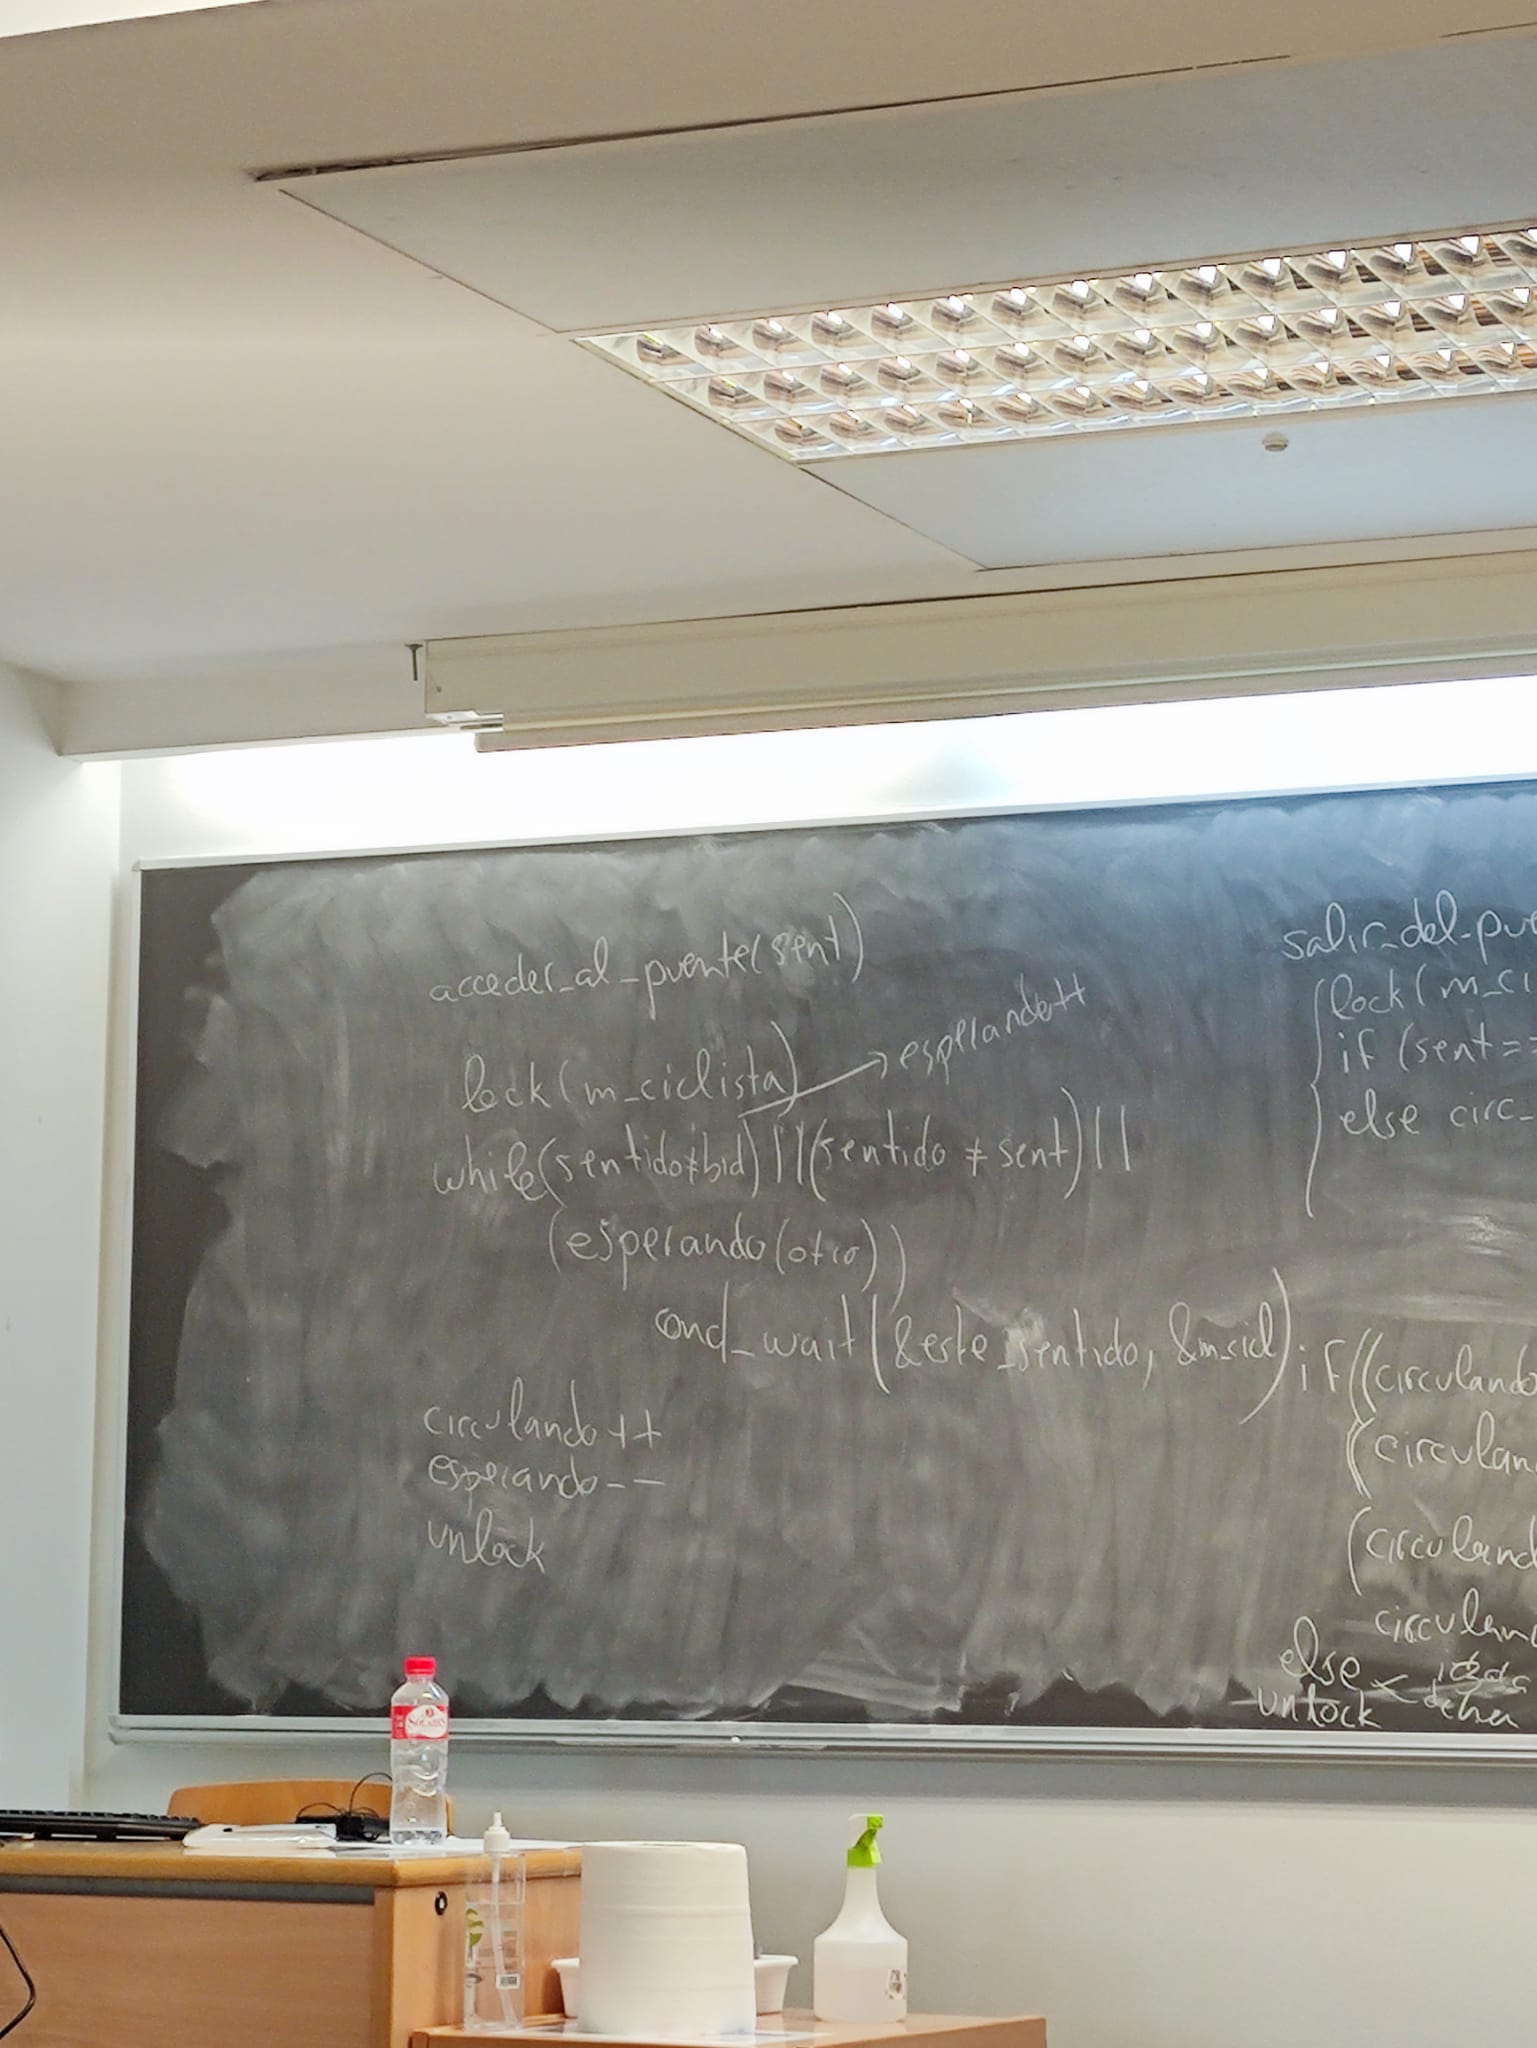 acceder_al_puente(sent)
lock(m_ciclista)
esperando++
while(sentido≠bid)||(sentido ≠ sent)||
(esperando(otro))
cond_wait(&este_sentido, &m_cicl)
circulando++
esperando--
unlock
salir_del_pue
lock(m_ci
if (sent==
else circ_
if((circulando
(circulan
(circuland
circuland
else
unlock
SOLARES